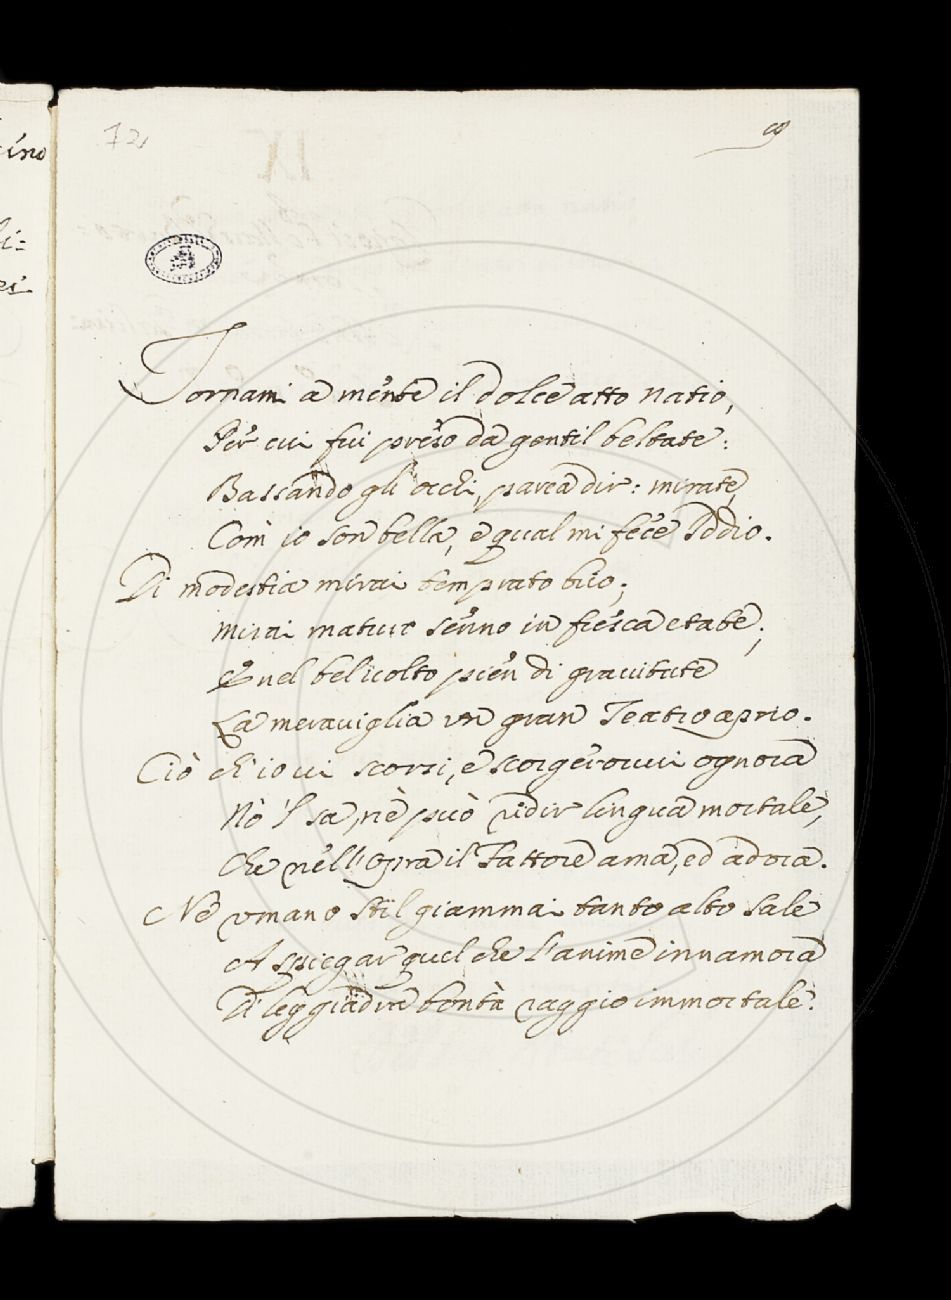 72
8
ino
li=
es
Tornami a mente il dolce atto natio,
Per cui fui preso da gentil beltate:
Bassando gli occhi, parea dir: mirate,
Com' io son bella, e qual mi fece Iddio.
Di modestia mirai temprato brio;
Mirai maturo senno in fresca etate;
E nel bel volto pien di gravitate
La meraviglia un gran Teatro aprio.
Ciò ch' io vi scorsi, e scorgerovvi ognora
Nò 'l sa, nè può ridir lingua mortale,
Che nell' opra il Fattore ama, ed adora.
Nè umano stil giammai tanto alto sale
A spiegar quel che l'anime innamora
Di leggiadra bontà raggio immortale.